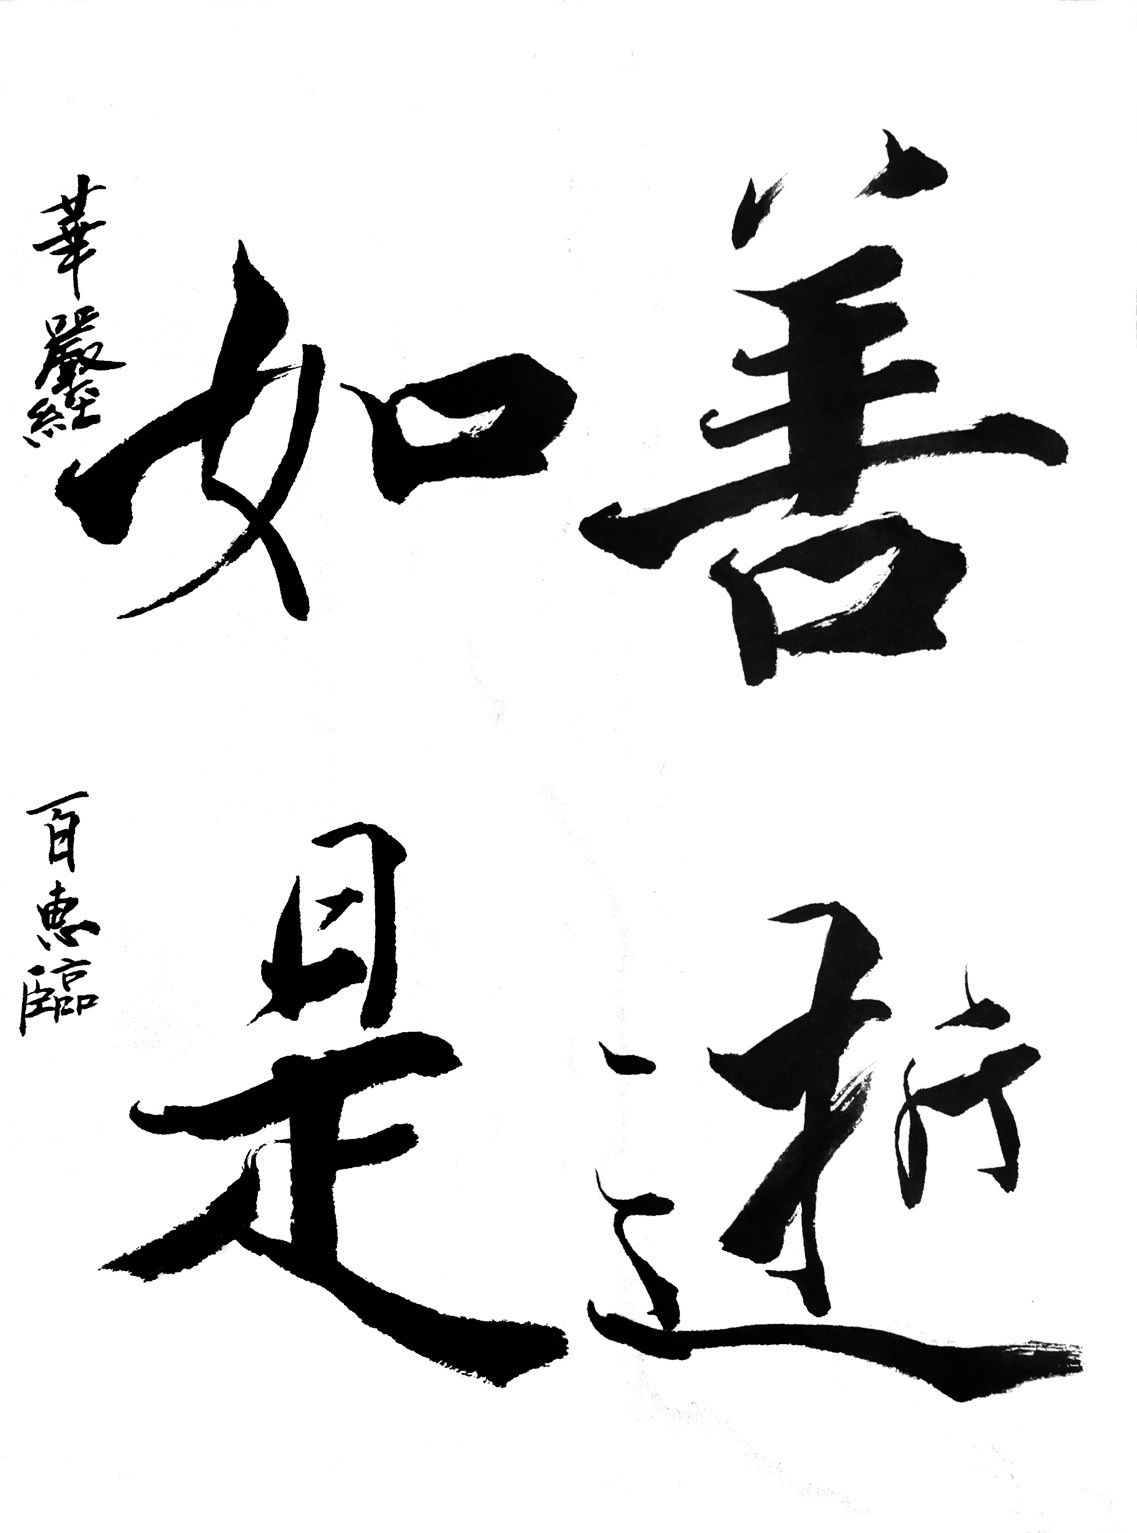 善逝
如是
華嚴經
百惠臨